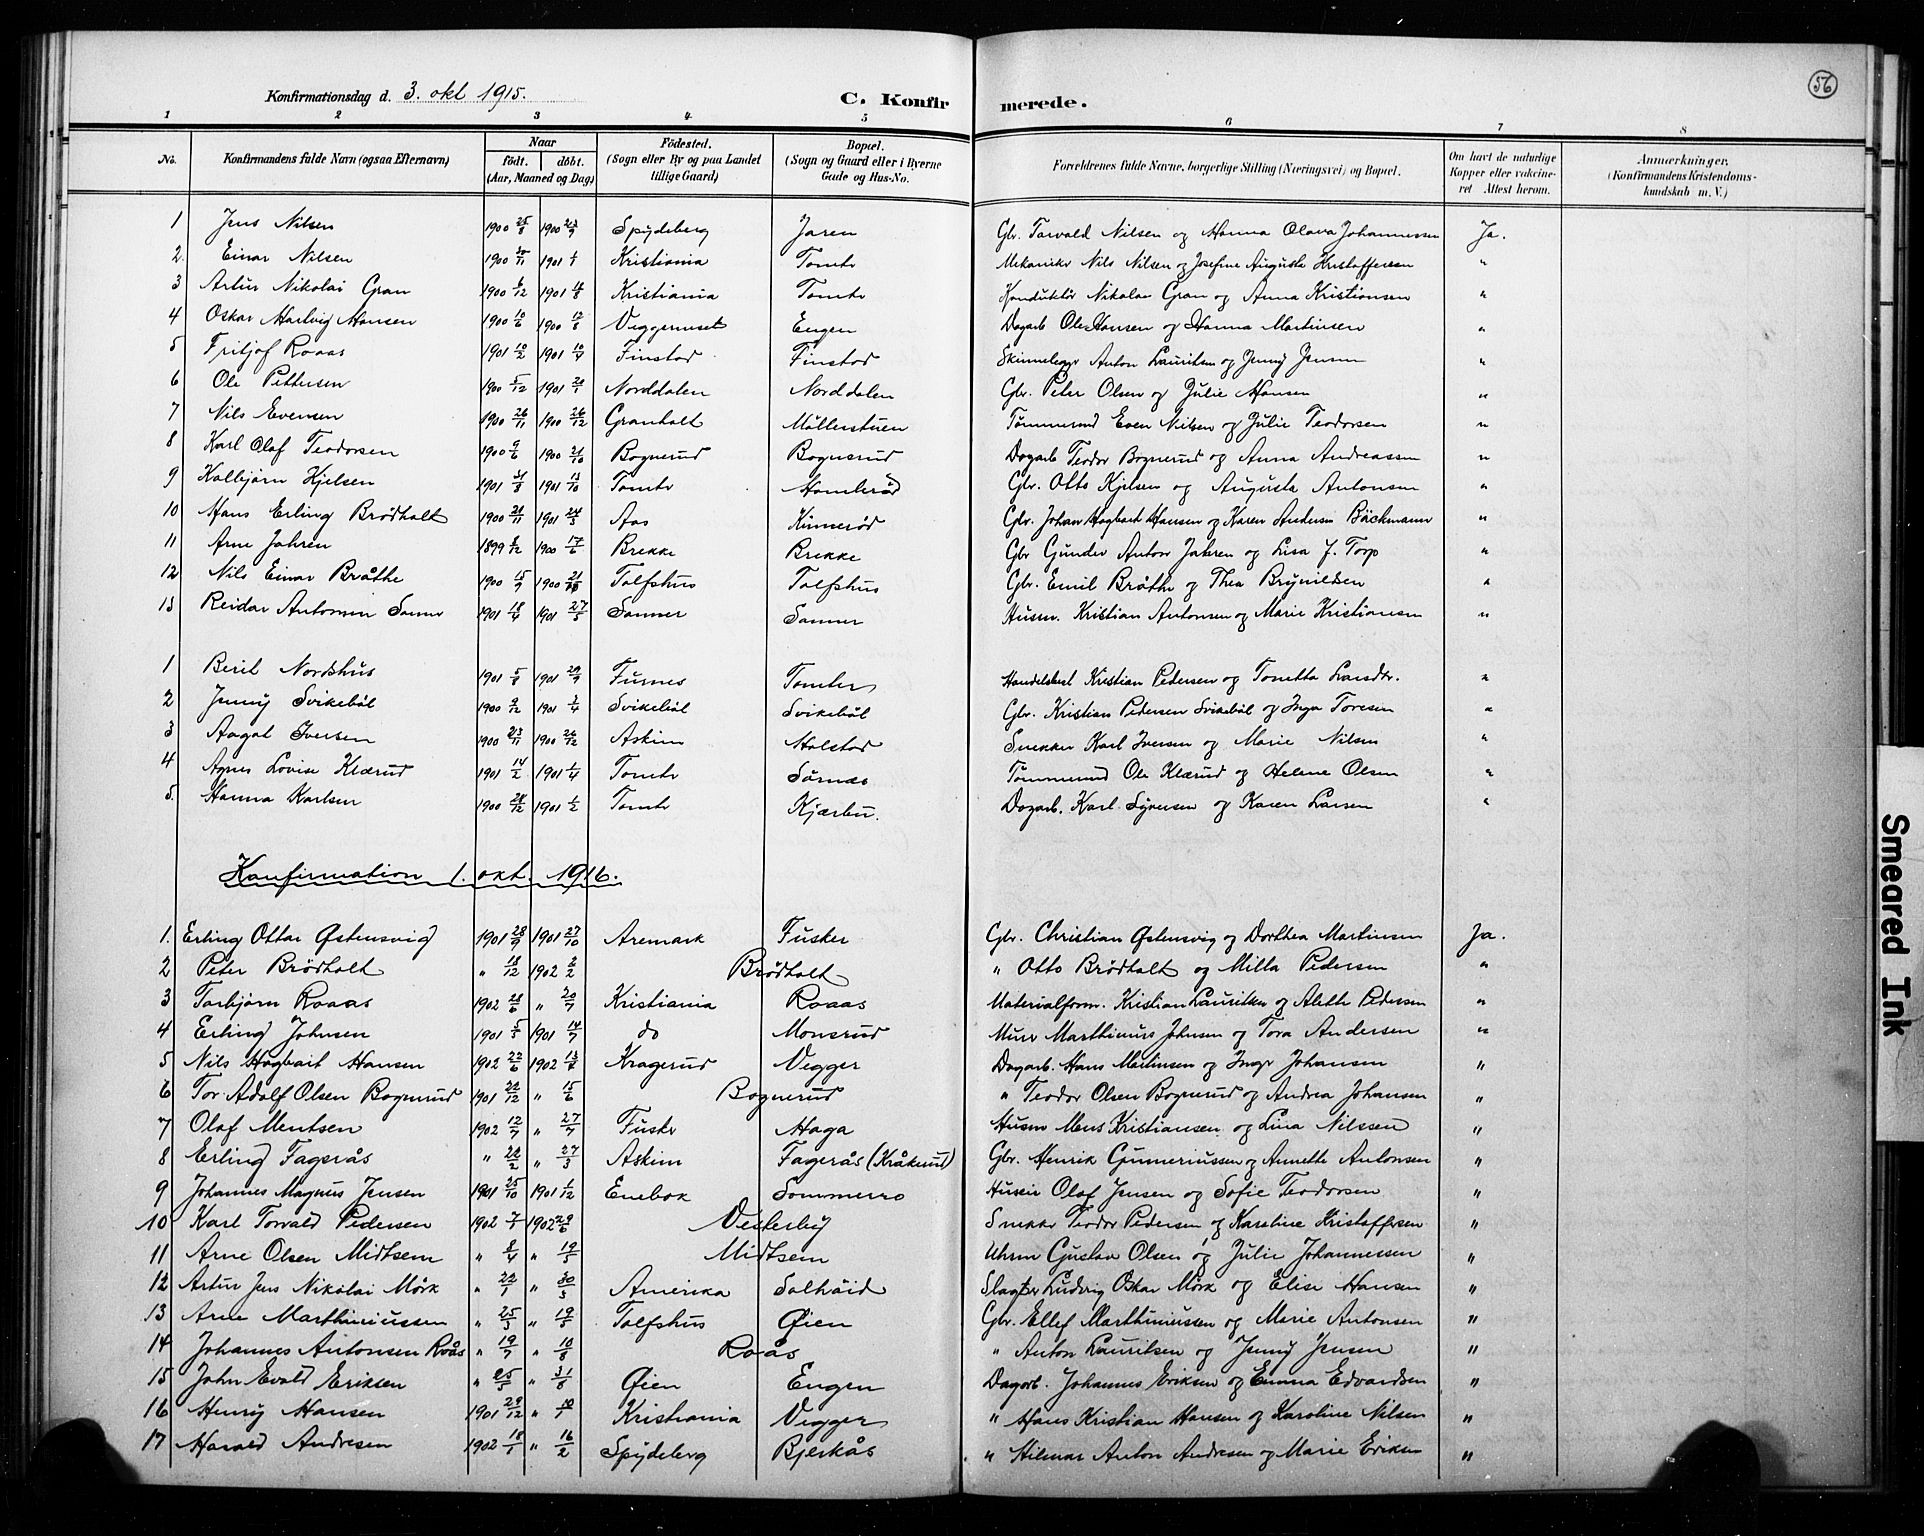 56
Konfirmationsdag d. 3. okt 1915.
C. Konfirmerede.
1 2 3 4 5 6 7 8
No. Konfirmandens fulde Navn (ogsaa Efternavn) Naar født. døbt. (Aar, Maaned og Dag) Fødested. (Sogn eller By og paa Landet tillige Gaard) Bopæl. (Sogn og Gaard eller i Byerne Gade og Hus-No. Forældrenes fulde Navne, borgerlige Stilling (Næringsvei) og Bopæl. Om havt de naturlige Kopper eller vakcineret Attest herom. Anmærkninger. (Konfirmandens Kristendomskundskab m. V.)
1 Jens Nilsen 1900 25/8 1900 23/9 Spydeberg Jaren Gbr. Torvald Nilsen og Hanna Olava Johannessen Ja.
2. Einar Nilsen 1900 30/11 1901 1/1 Kristiania Tomter Mekaniker Nils Nilsen og Josefine Augusta Kristoffersen "
3 Artur Nikolai Gran 1900 1901 Kristiania Tomter Konduktør Nikolai Gran og Anna Kristiansen "
4 Oskar Hartvig Hansen 1900 10/6 1900 12/8 Veggerniset Engen Dagarb Ole Hansen og Hanna Martinsen "
5 Fritjof Roaas 1901 10/2 1901 Finstad Finstad Anton Lauritsen og Jenny Jensen "
6 Ole Pettersen 1900 5/12 1901 20/1 Norddalen Norddalen Gbr. Peter Olsen og Julie Hansen "
7 Nils Evensen 1900 26/11 1900 26/12 Granholt Møllerstuen Tømmermd Even Nilsen og Julie Teodorsen "
8 Karl Olaf Teodorsen 1900 9/6 1900 21/10 Bognerud Bognerud Dagarb Teodor Bognerud og Anna Andreassen "
9 Kolbjørn Kjelsen 1901 31/8 1901 13/10 Tomter Homlerød Gbr. Otto Kjelsen og Augusta Antonsen "
10 Hans Erling Brødholt 1900 21/11 1901 24/3 Aas Kinnerød Gbr. Johan Hagbart Hansen og Karen Andersen Bäckmann "
11 Arne Jahren 1899 1900 17/6 Brekke Brekke Gbr Gunder Anton Jahren og Lisa J. Torp "
12 Nils Einar Bråthe 1900 15/9 1900 Tolfshus Tolfshus Gbr. Emil Bråthe og Thea Brynildsen "
13 Reidar Antonsen Sanner 1901 18/4 1901 27/5 Sanner Sanner Husm. Kristian Antonsen og Marie Kristiansen "
1 Beril Nordshus 1901 5/8 1901 29/9 Furnes Tomter Handelsbest Kristian Pedersen og Tonetta "
2 Jenny Svikebøl 1900 9/12 1901 Svikebøl Svikebøl Gbr. Kristian Pedersen Svikebøl og Inga Toresen "
3 Aagot Iversen 1900 23/11 1900 26/12 Askim Holstad Snekker Karl Iversen og Marie Nilsen "
4 Agnes Lovise Klærud 1901 14/2 1901 1/4 Tomter Sørnæs Tømmermd Ole Klærud og Helene Olsen "
5. Hanna Karlsen 1900 28/12 1901 1/2 Tomter Kjærbu. Dagarb. Karl Syversen og Karen Larsen "
Konfirmation 1. okt. 1916.
1. Erling Ottar Østensvig 1901 28/9 1901 27/10 Aremark Fusker Gbr. Christian Østensvig og Dorthea Martinsen Ja.
2 Peter Brødholt " 18/12 1902 2/2 Brødholt " Otto Brødholt og Milla Pedersen "
3 Torbjørn Roaas 1902 28/6 " 20/7 Kristiania Roaas Materialform. Kristian Lauritsen og Alette Pedersen "
4 Erling Johnsen 1901 1901 14/7 do Monsrud Murer Marthinius Johnsen og Tora Andersen "
5 Nils Hagbart Hansen 1902 22/6 1902 Kragerud Vegger Dagarb. Hans Martinsen og Inger Johansen "
6 Tor Adolf Olsen Bognerud 1901 22/12 " 15/6 Bognerud " Teodor Olsen Bognerud og Andrea Johansen "
7 Olaf Mentsen 1902 12/7 " 27/7 Fusker Haga Husm Mens Kristiansen og Lina Nilssen "
8 Erling Fagerås " 22/2 " 27/3 Askim Fagerås (Kråkerud) Gbr. Henrik Gunneriussen og Annette Antonsen "
9 Johannes Magnus Jensen 1901 25/10 1901 1/12 Enebak Sommerro Huseier Olaf Jensen og Sofie Teodorsen "
10 Karl Torvald Pedersen 1902 1902 29/6 Vesterby Snekker Teodor Pedersen og Karoline Kristoffersen "
11 Arne Olsen Midtsem " 8/4 " 19/5 Midtsem Uhrm Gustav Olsen og Julie Johannessen "
12 Artur Jens Nikolai Mørk " 22/1 " 30/3 Amerika Solhøid Slagter Ludvig Oskar Mørk og Elise Hansen "
13 Arne Marthiniussen " 25/3 " 19/5 Tolfshus Øien Gbr. Ellef Marthiniussen og Marie Antonsen "
14 Johannes Antonsen Roås " 19/7 " 10/8 Roås " Anton Lauritsen og Jenny Jensen "
15 John Evald Eriksen " 25/5 " 31/8 Øien Engen Dagarb. Johannes Eriksen og Emma Edvardsen "
16 Henry Hansen 1901 29/12 " Kristiania Vegger " Hans Kristian Hansen og Karoline Nilsen "
17 Harald Andresen 1902 18/1 " 16/2 Spydeberg Bjerkås " Hilmar Anton Andresen og Marie Eriksen "
Smeared Ink